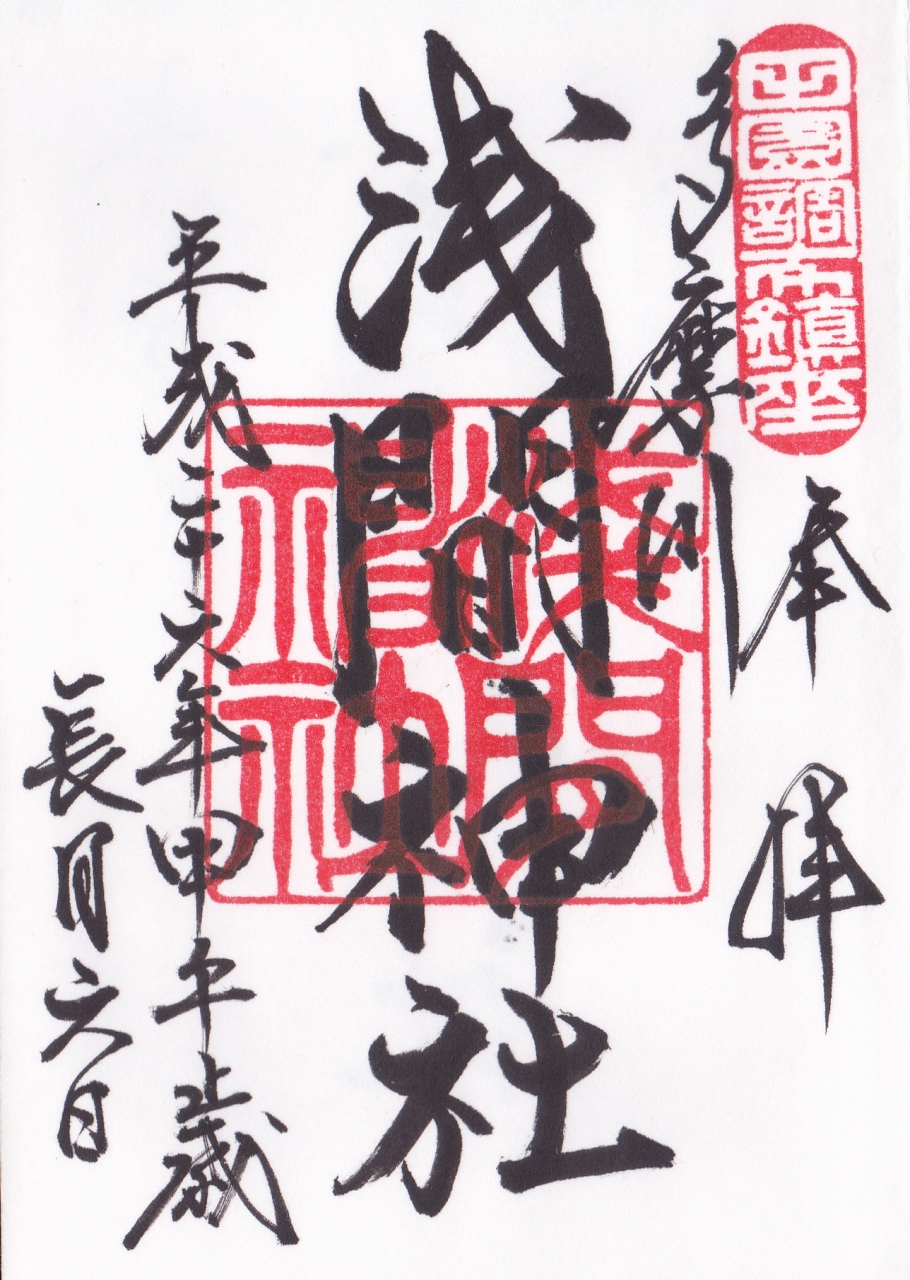 田園調布鎮座
奉拝
多摩川
浅間神社
浅間神社
平成二十六年甲午歳
長月六日